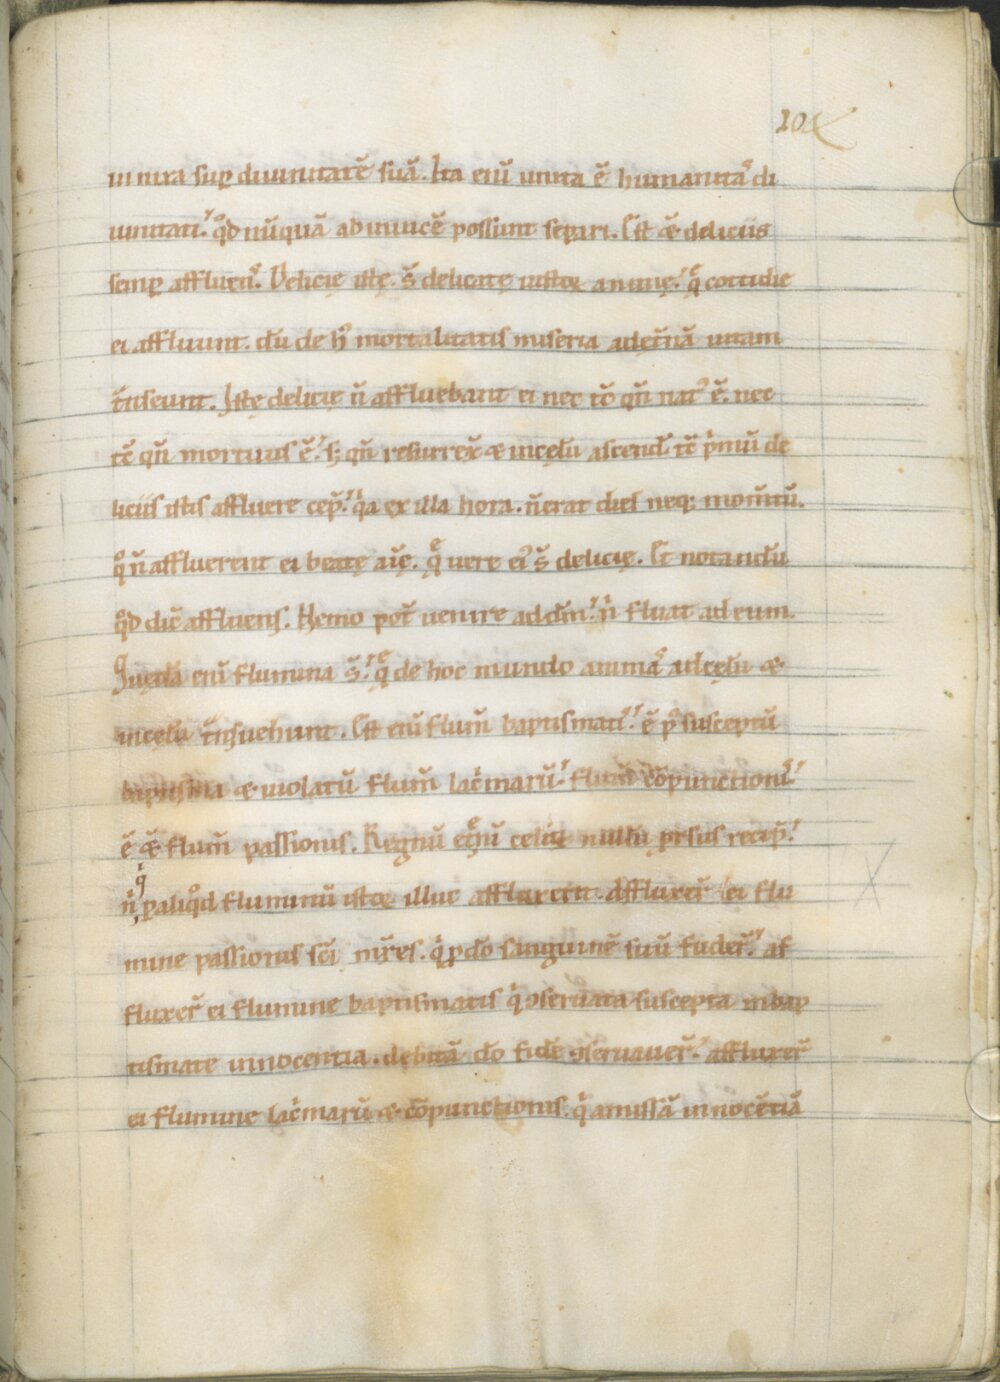 10
in nixa sup diuinitatē suā. Ita eniī unita ē humanitaˢ di
uinitati. qͦd nūquā ab inuicē possunt separi. Est & deliciis
semp affluenˢ. Delicię istę. s̄ delicatę iustoꝝ animę. qͤ cottidie
ei affluunt. dū de hꝰ mortalitatis miseria ad et̄nā uitam
t̄nseunt. Istę delicię n̄ affluebant ei nec tc̄ qn̄ natꝰ ē. nec
tc̄ qn̄ mortuus ē. sꝫ qn̄ resurrex̄ & in cęlū ascend̄. tc̄ pͥmū de
liciis istis affluere cep̄. qͥa ex illa hora. n̄ erat dies neqꝫ mom̄tū.
qͦ n̄ affluerent ei beatę aīę. qͤ uere eiꝰ s̄ delicię. Et notandū
qͦd dic̄ affluens. Nemo pot̄ uenire ad dm̄. nͥ fluat ad eum.
Quędā eniī flumina s̄. qͤ de hoc mundo animaˢ ad cęlū &
in cęlū t̄nsuehunt. Est eniī flum̄ baptismatiˢ. ē pˢ susceptū
baptisma & uiolatū flum̄ lacͥmarū. flum̄ cōpunctioniˢ.
ē & flum̄ passionis. Regnū celiqꝫ nullū prsus recip̄.
nͥ qͥ ꝑ aliqͦd fluminū istoꝝ illuc affluxerit. Affluxer̄ ei flu
mine passionis sc̄i mr̄es. qͥ ꝓ dō sanguinē suū fuder̄. af
fluxer̄ ei flumine baptismatis qͥ ꝯseruata suscepta in bap
tismate innocentia. debitā dō fidē ꝯseruauer̄. affluxer̄
ei flumine lacͥmarū & cōpunctionis. qͥ amissā innocētiā